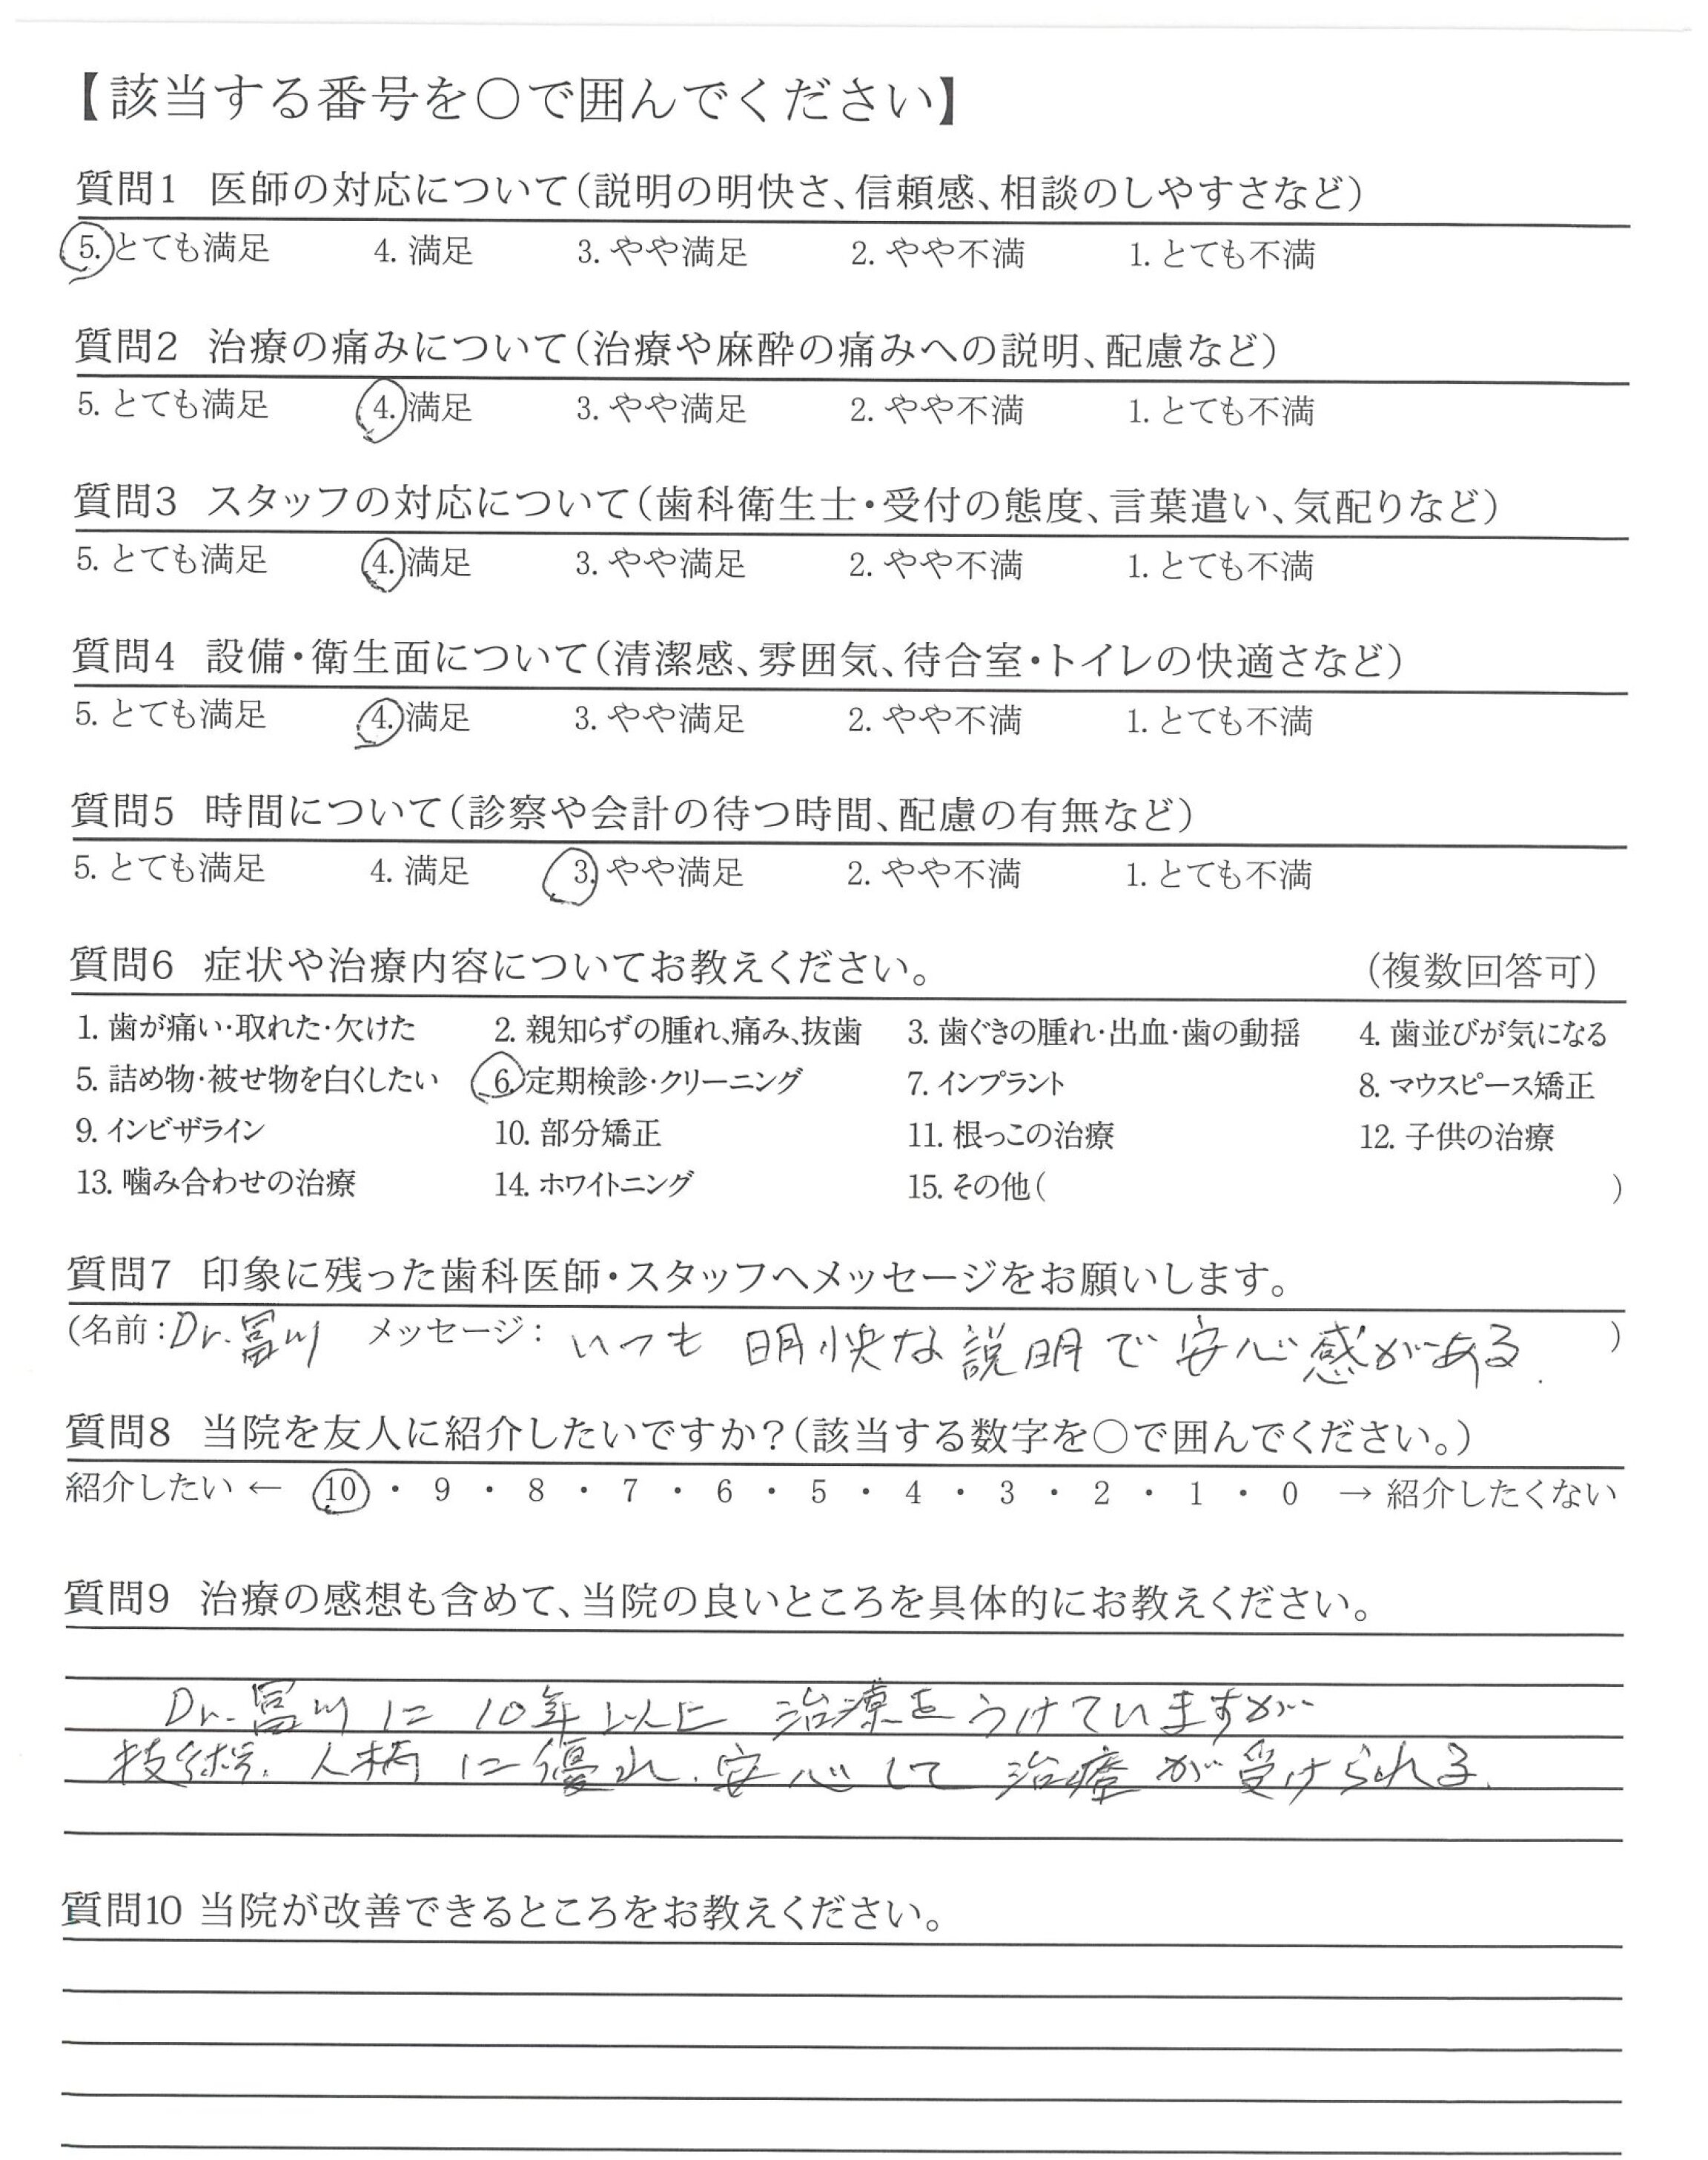 【該当する番号を○で囲んでください】
質問1 医師の対応について(説明の明快さ、信頼感、相談のしやすさなど)
5. とても満足 4. 満足 3. やや満足 2. やや不満 1. とても不満
質問2 治療の痛みについて(治療や麻酔の痛みへの説明、配慮など)
5. とても満足 4. 満足 3. やや満足 2. やや不満 1. とても不満
質問3 スタッフの対応について(歯科衛生士・受付の態度、言葉遣い、気配りなど)
5. とても満足 4. 満足 3. やや満足 2. やや不満 1. とても不満
質問4 設備・衛生面について(清潔感、雰囲気、待合室・トイレの快適さなど)
5. とても満足 4. 満足 3. やや満足 2. やや不満 1. とても不満
質問5 時間について(診察や会計の待つ時間、配慮の有無など)
5. とても満足 4. 満足 3. やや満足 2. やや不満 1. とても不満
質問6 症状や治療内容についてお教えください。 (複数回答可)
1. 歯が痛い・取れた・欠けた 2. 親知らずの腫れ、痛み、抜歯 3. 歯ぐきの腫れ・出血・歯の動揺 4. 歯並びが気になる
5. 詰め物・被せ物を白くしたい 6. 定期検診・クリーニング 7. インプラント 8. マウスピース矯正
9. インビザライン 10. 部分矯正 11. 根っこの治療 12. 子供の治療
13. 噛み合わせの治療 14. ホワイトニング 15. その他( )
質問7 印象に残った歯科医師・スタッフへメッセージをお願いします。
(名前：Dr.冨川 メッセージ： いつも 明快な説明で安心感がある. )
質問8 当院を友人に紹介したいですか？(該当する数字を○で囲んでください。)
紹介したい ← 10 ・ 9 ・ 8 ・ 7 ・ 6 ・ 5 ・ 4 ・ 3 ・ 2 ・ 1 ・ 0 → 紹介したくない
質問9 治療の感想も含めて、当院の良いところを具体的にお教えください。
Dr.冨川に 10年以上 治療をうけていますが
技術、人柄に優れ、安心して 治療が受けられる.
質問10 当院が改善できるところをお教えください。